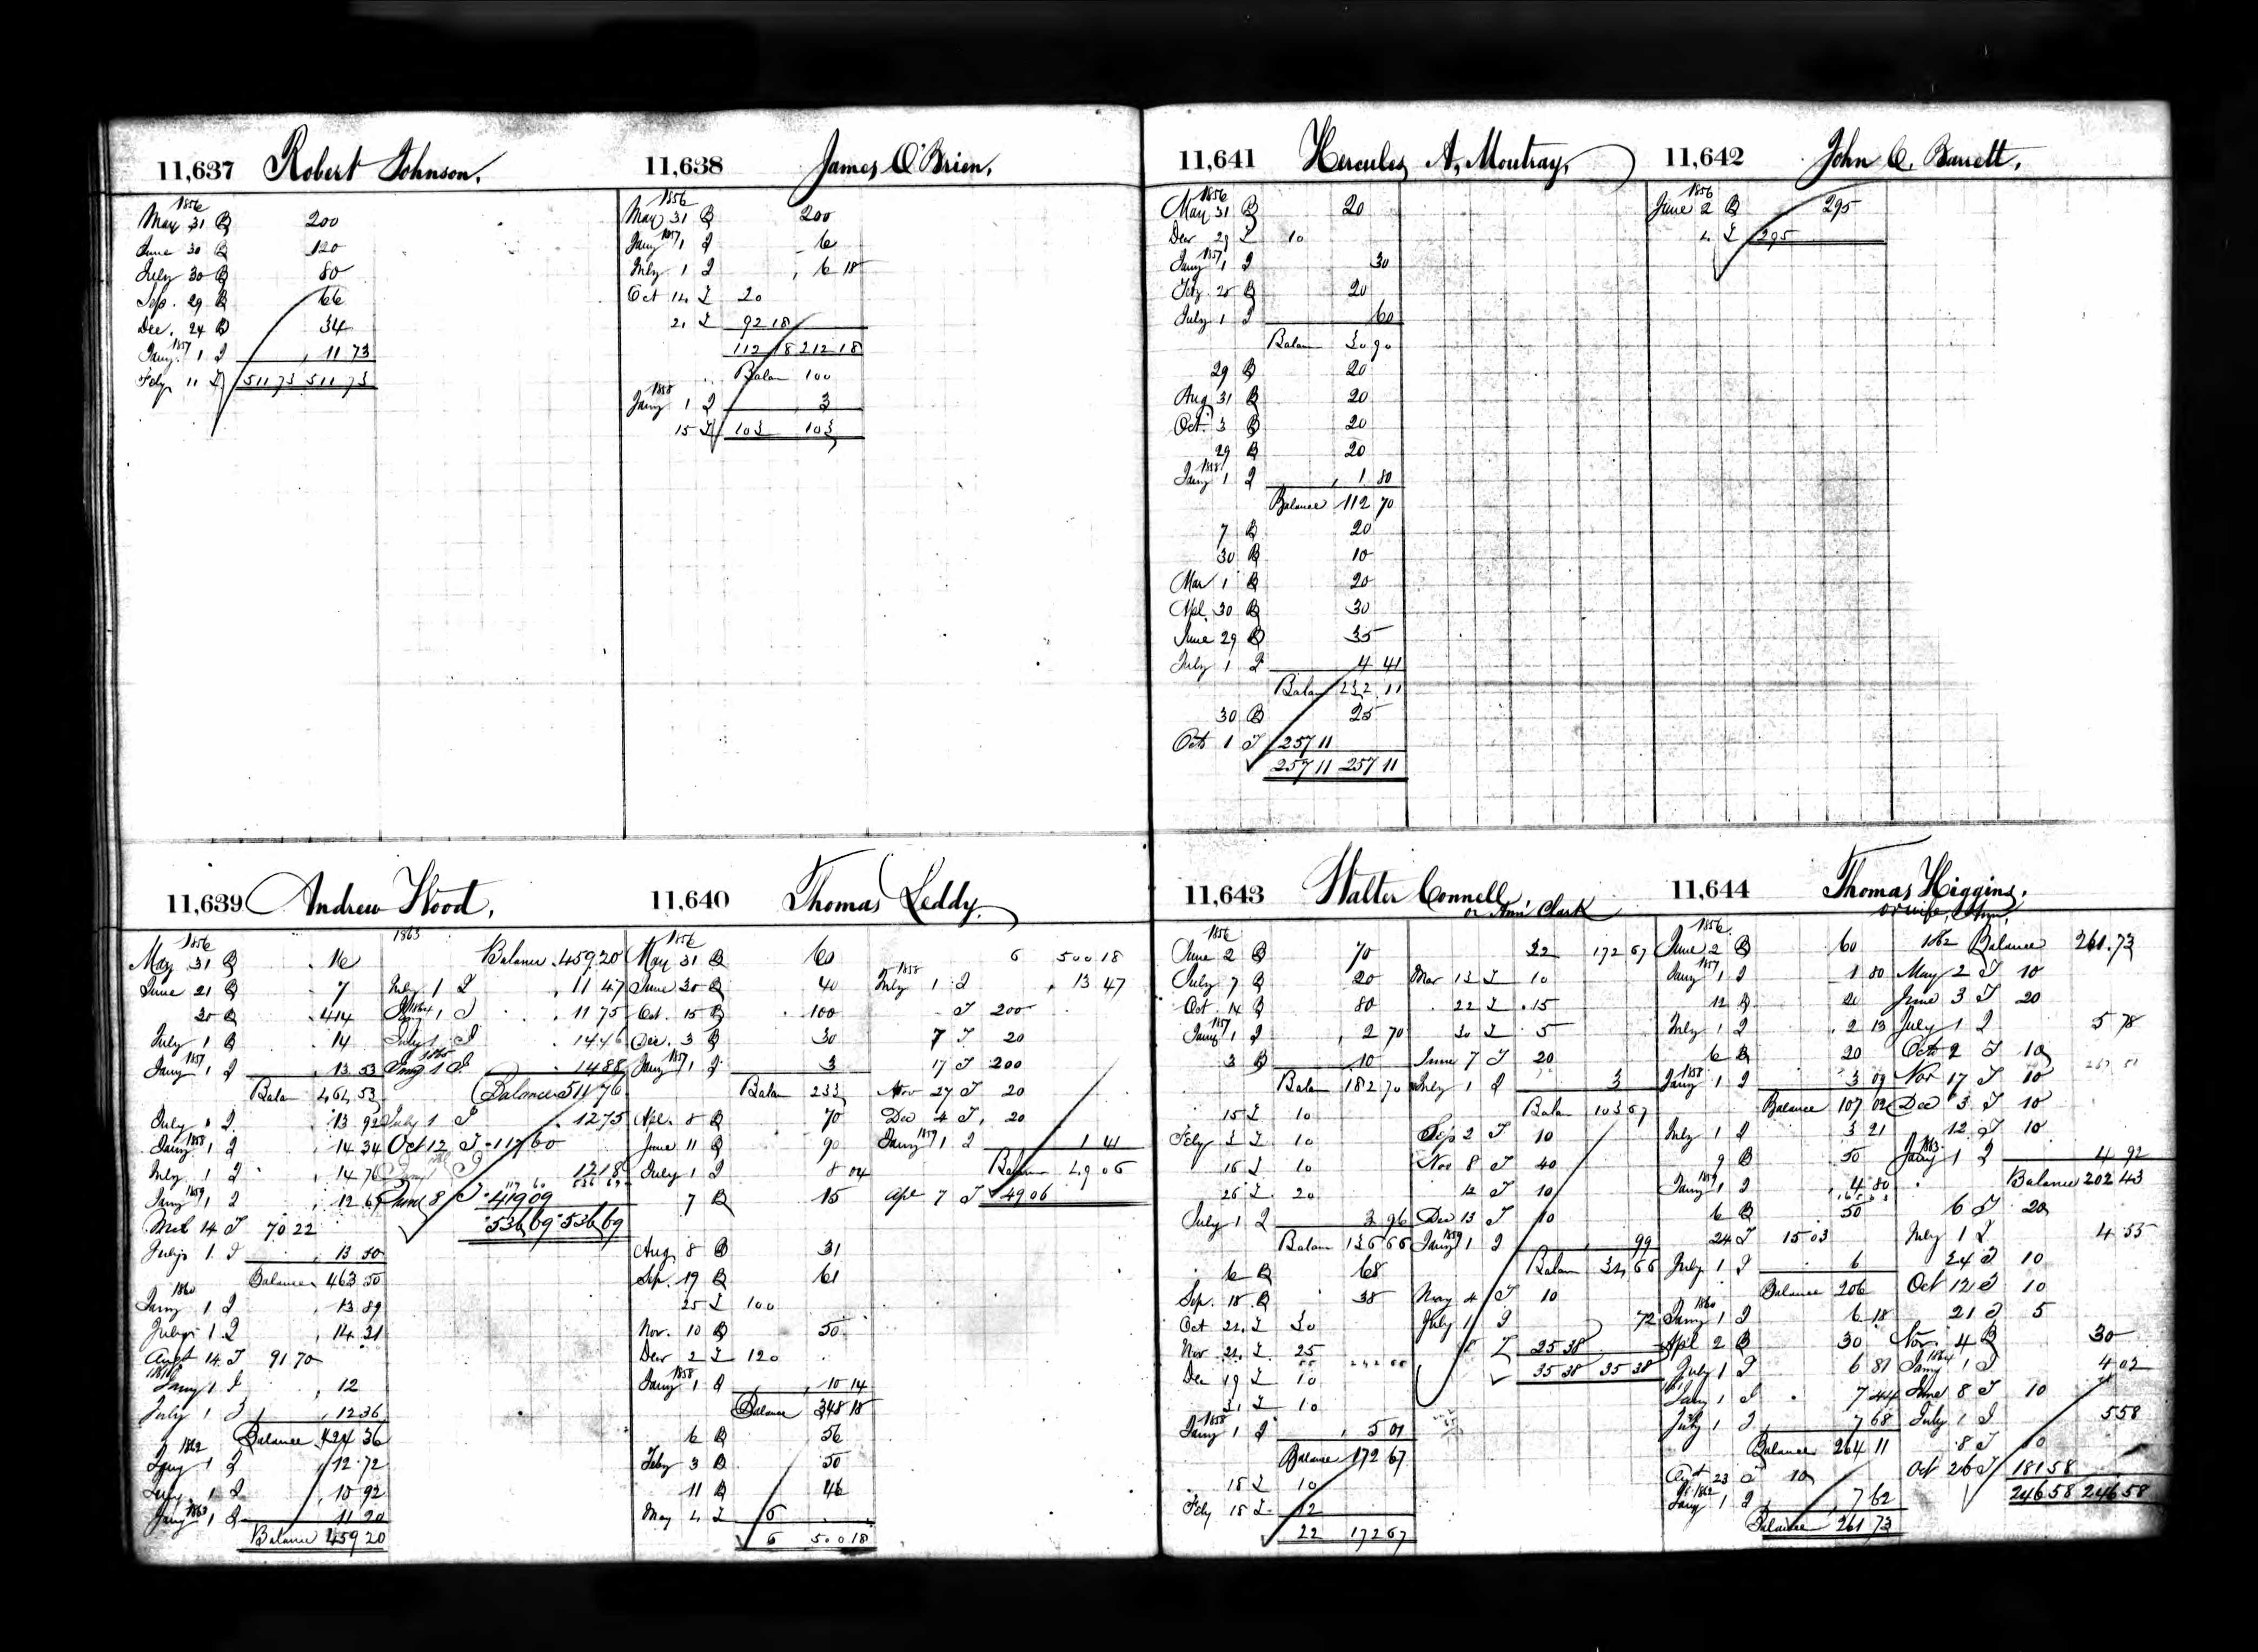 11,637 Robert Johnson.
1856
May 31 B 200
June 30 B 120
July 30 B 80
Sep. 29 B 66
Dec. 24 B 34
1857
Jany. 1 I 11 73
Feby 11 T 511 73 511 73
11,638 James O'Brien,
1856
May 31 B 200
1857
Jany 1 I 6
July 1 I 6 18
Oct 14 T 20
21 T 92 18
112 18 212 18
Balan 100
1858
Jany 1 I 3
15 T 103 103
11,639 Andrew Wood,
1856
May 31 B 16
June 21 B 7
30 B 414
July 1 B 14
1857
Jany 1 I 13 53
Balan 464 53
July 1 I 13 92
1858
Jany 1 I 14 34
July 1 I 14 76
1859
Jany 1 I 12 67
Mch 14 T 70 22
July 1 I 13 50
Balance 463 50
1860
Jany 1 I 13 89
July 1 I 14 31
Augt 14 T 91 70
1861
Jany 1 I 12
July 1 I 12 36
Balance 424 36
1862
Jany 1 I 12 72
July 1 I 10 92
1863
Jany 1 I 11 20
Balance 459 20
1863
Balance 459 20
July 1 I 11 47
1864
Jany 1 I 11 75
July 1 I 14 46
1865
Jany 1 I 14 88
Balance 511 76
July 1 I 12 75
Oct 12 T 117 60
12 18
June 8 T 419 09
536 69 536 69
11,640 Thomas Leddy,
1856
May 31 B 60
June 30 B 40
Oct. 15 B 100
Dec. 3 B 30
1857
Jany 1 I 3
Balan 233
Apl. 8 B 70
June 11 B 90
July 1 I 8 04
7 B 15
Aug 8 B 31
Sep. 19 B 61
25 T 100
Nov. 10 B 50
Decr 2 T 120
1858
Jany 1 I 10 14
Balance 348 18
6 B 56
Feby 3 B 50
11 B 46
May 4 T 6
6 500 18
6 500 18
1858
July 1 I 13 47
T 200
7 T 20
17 T 200
Nov 27 T 20
Dec 4 T 20
1859
Jany 1 I 1 41
Balan 49 06
Apl 7 T 49 06
11,641 Hercules A. Moutray,
1856
May 31 B 20
Decr 29 T 10
1857
Jany 1 I 30
Feby 28 B 20
July 1 I 60
Balan 30 90
29 B 20
Aug 31 B 20
Oct. 3 B 20
29 B 20
1858
Jany 1 I 1 80
Balance 112 70
7 B 20
30 B 10
Mar 1 B 20
Apl. 30 B 30
June 29 B 35
July 1 I 4 41
Balan 232 11
30 B 25
Oct 1 T 257 11
257 11 257 11
11,642 John C. Barrett,
1856
June 2 B 295
4 T 295
11,643 Walter Connell
or Ann Clark
1856
June 2 B 70
July 7 B 20
Oct. 14 B 80
1857
Jany 1 I 2 70
3 B 10
Balan 182 70
15 T 10
Feby 3 T 10
16 T 10
26 T 20
July 1 I 3 96
Balan 136 66
6 B 68
Sep. 18 B 38
Oct 24 T 30
Nov 24 T 25
Dec 19 T 10
31 T 10
1858
Jany 1 I 5 01
Balance 172 67
18 T 10
Feby 18 T 12
22 172 67
22 172 67
Mar 13 T 10
22 T 15
30 T 5
June 7 T 20
July 1 I 3
Balan 103 67
Sep 2 T 10
Nov 8 T 40
12 T 10
Dec 13 T 10
1859
Jany 1 I 99
Balan 34 66
May 4 T 10
July 1 I 72
T 25 38
35 38 35 38
11,644 Thomas Higgins,
or wife,
1856
June 2 B 60
1857
Jany 1 I 1 80
12 B 20
July 1 I 2 13
6 B 20
1858
Jany 1 I 3 09
Balance 107 02
July 1 I 3 21
9 B 50
1859
Jany 1 I 4 80
6 B 50
24 T 15 03
July 1 I 6
Balance 206
1860
Jany 1 I 6 18
Apl 2 B 30
July 1 I 6 81
1861
Jany 1 I 7 44
July 1 I 7 68
Balance 264 11
Augt 23 T 10
1862
Jany 1 I 7 62
Balance 261 73
1862 Balance 261.73
May 2 T 10
June 3 T 20
July 1 I 5 78
Oct 2 T 10
Nov 17 T 10
Dec 3 T 10
12 T 10
1863
Jany 1 I 4 92
Balance 202 43
6 T 20
July 1 I 4 55
24 T 10
Oct 12 T 10
21 T 5
Nov. 4 B 30
1864
Jany 1 I 4 02
June 8 T 10
July 1 I 5 58
8 T 10
Oct 26 T 181 58
246 58 246 58